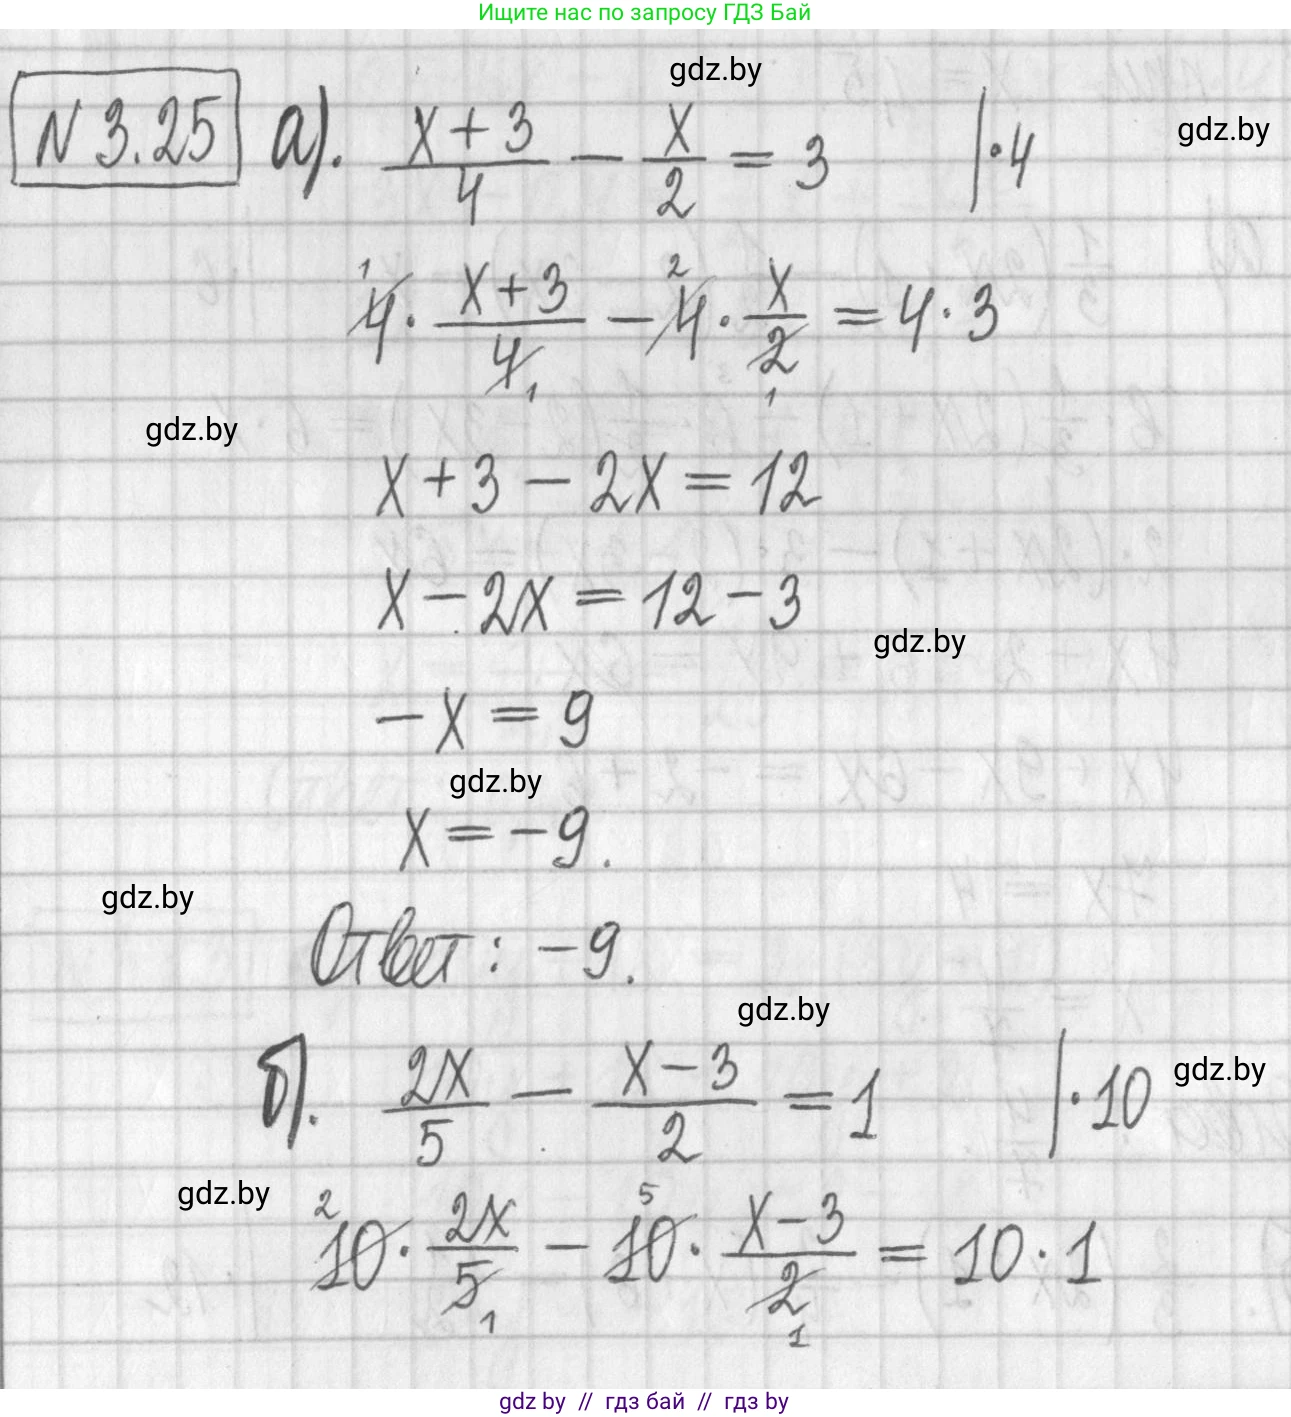 Ищите нас по запросу ГДЗ Бай
gdz.by
N 3.25 а). (x+3)/4 − x/2 = 3 |·4
gdz.by
1 4 · (x+3)/4 1 − 2 4 · x/2 1 = 4·3
gdz.by
x+3−2x=12
x−2x=12−3
gdz.by
−x=9
gdz.by
x=−9.
gdz.by
Ответ: −9.
gdz.by
б). 2x/5 − (x−3)/2 = 1 |·10
gdz.by
gdz.by
2 10 · 2x/5 1 − 5 10 · (x−3)/2 1 = 10·1
gdz by // гдз бай // гдз by